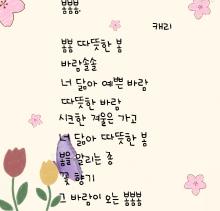 뿅뿅.
캐리
뿅 따뜻한 봄
바람솔솔
너 닮아 예쁜 바람
따뜻한 바람
시크한 겨울은 가고
너 닮아 따뜻한 봄
봄을 알리는 종
꽃 향기
그 바람이 오는 뿅뿅뿅